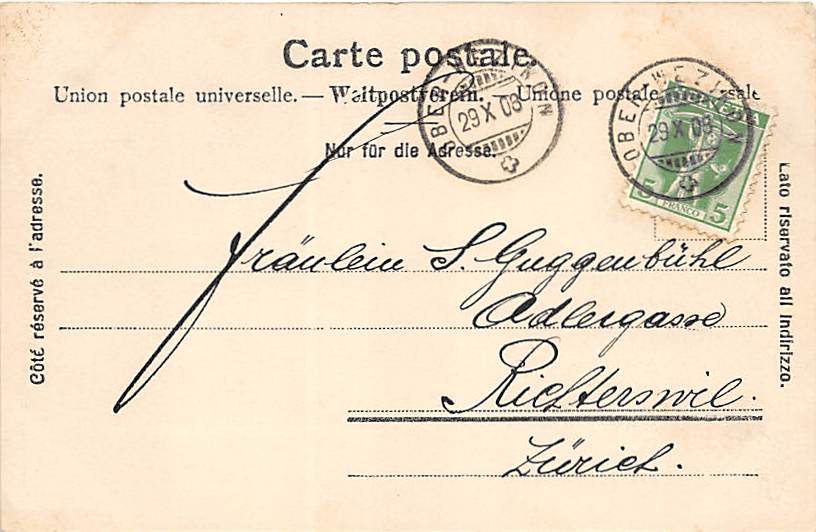 Carte postale.
Union postale universelle. — Weltpostverein. — Unione postale universale
Nur für die Adresse.
OBER WEZIKON
29 X 08
OBER WEZIKON
29 X 08
HELVETIA
5 FRANCO 5
Côté réservé à l'adresse.
Lato riservato all indirizzo.
Fräulein S. Guggenbühl
Adlergasse
Richterswil.
Zürich.